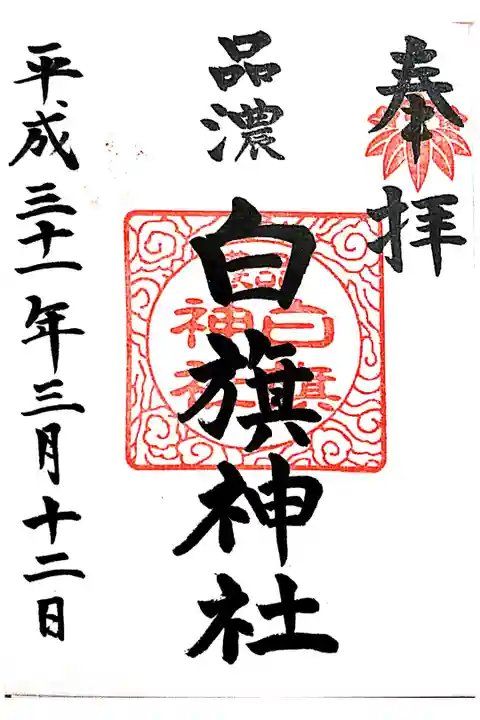 奉拝
品濃
白旗神社
平成三十一年三月十二日
白旗
神社